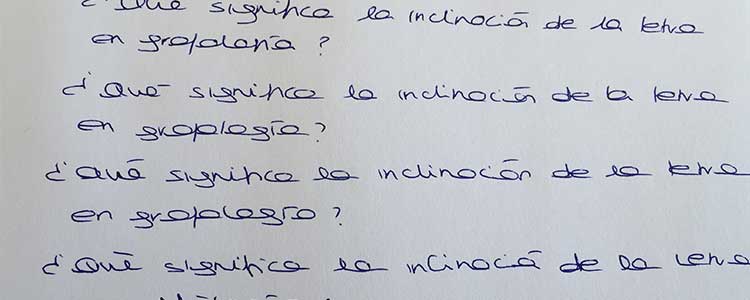 ¿Qué significa la inclinación de la letra
en grafología?
¿Qué significa la inclinación de la letra
en grafología?
¿Qué significa la inclinación de la letra
en grafología?
¿Qué significa la inclinación de la letra